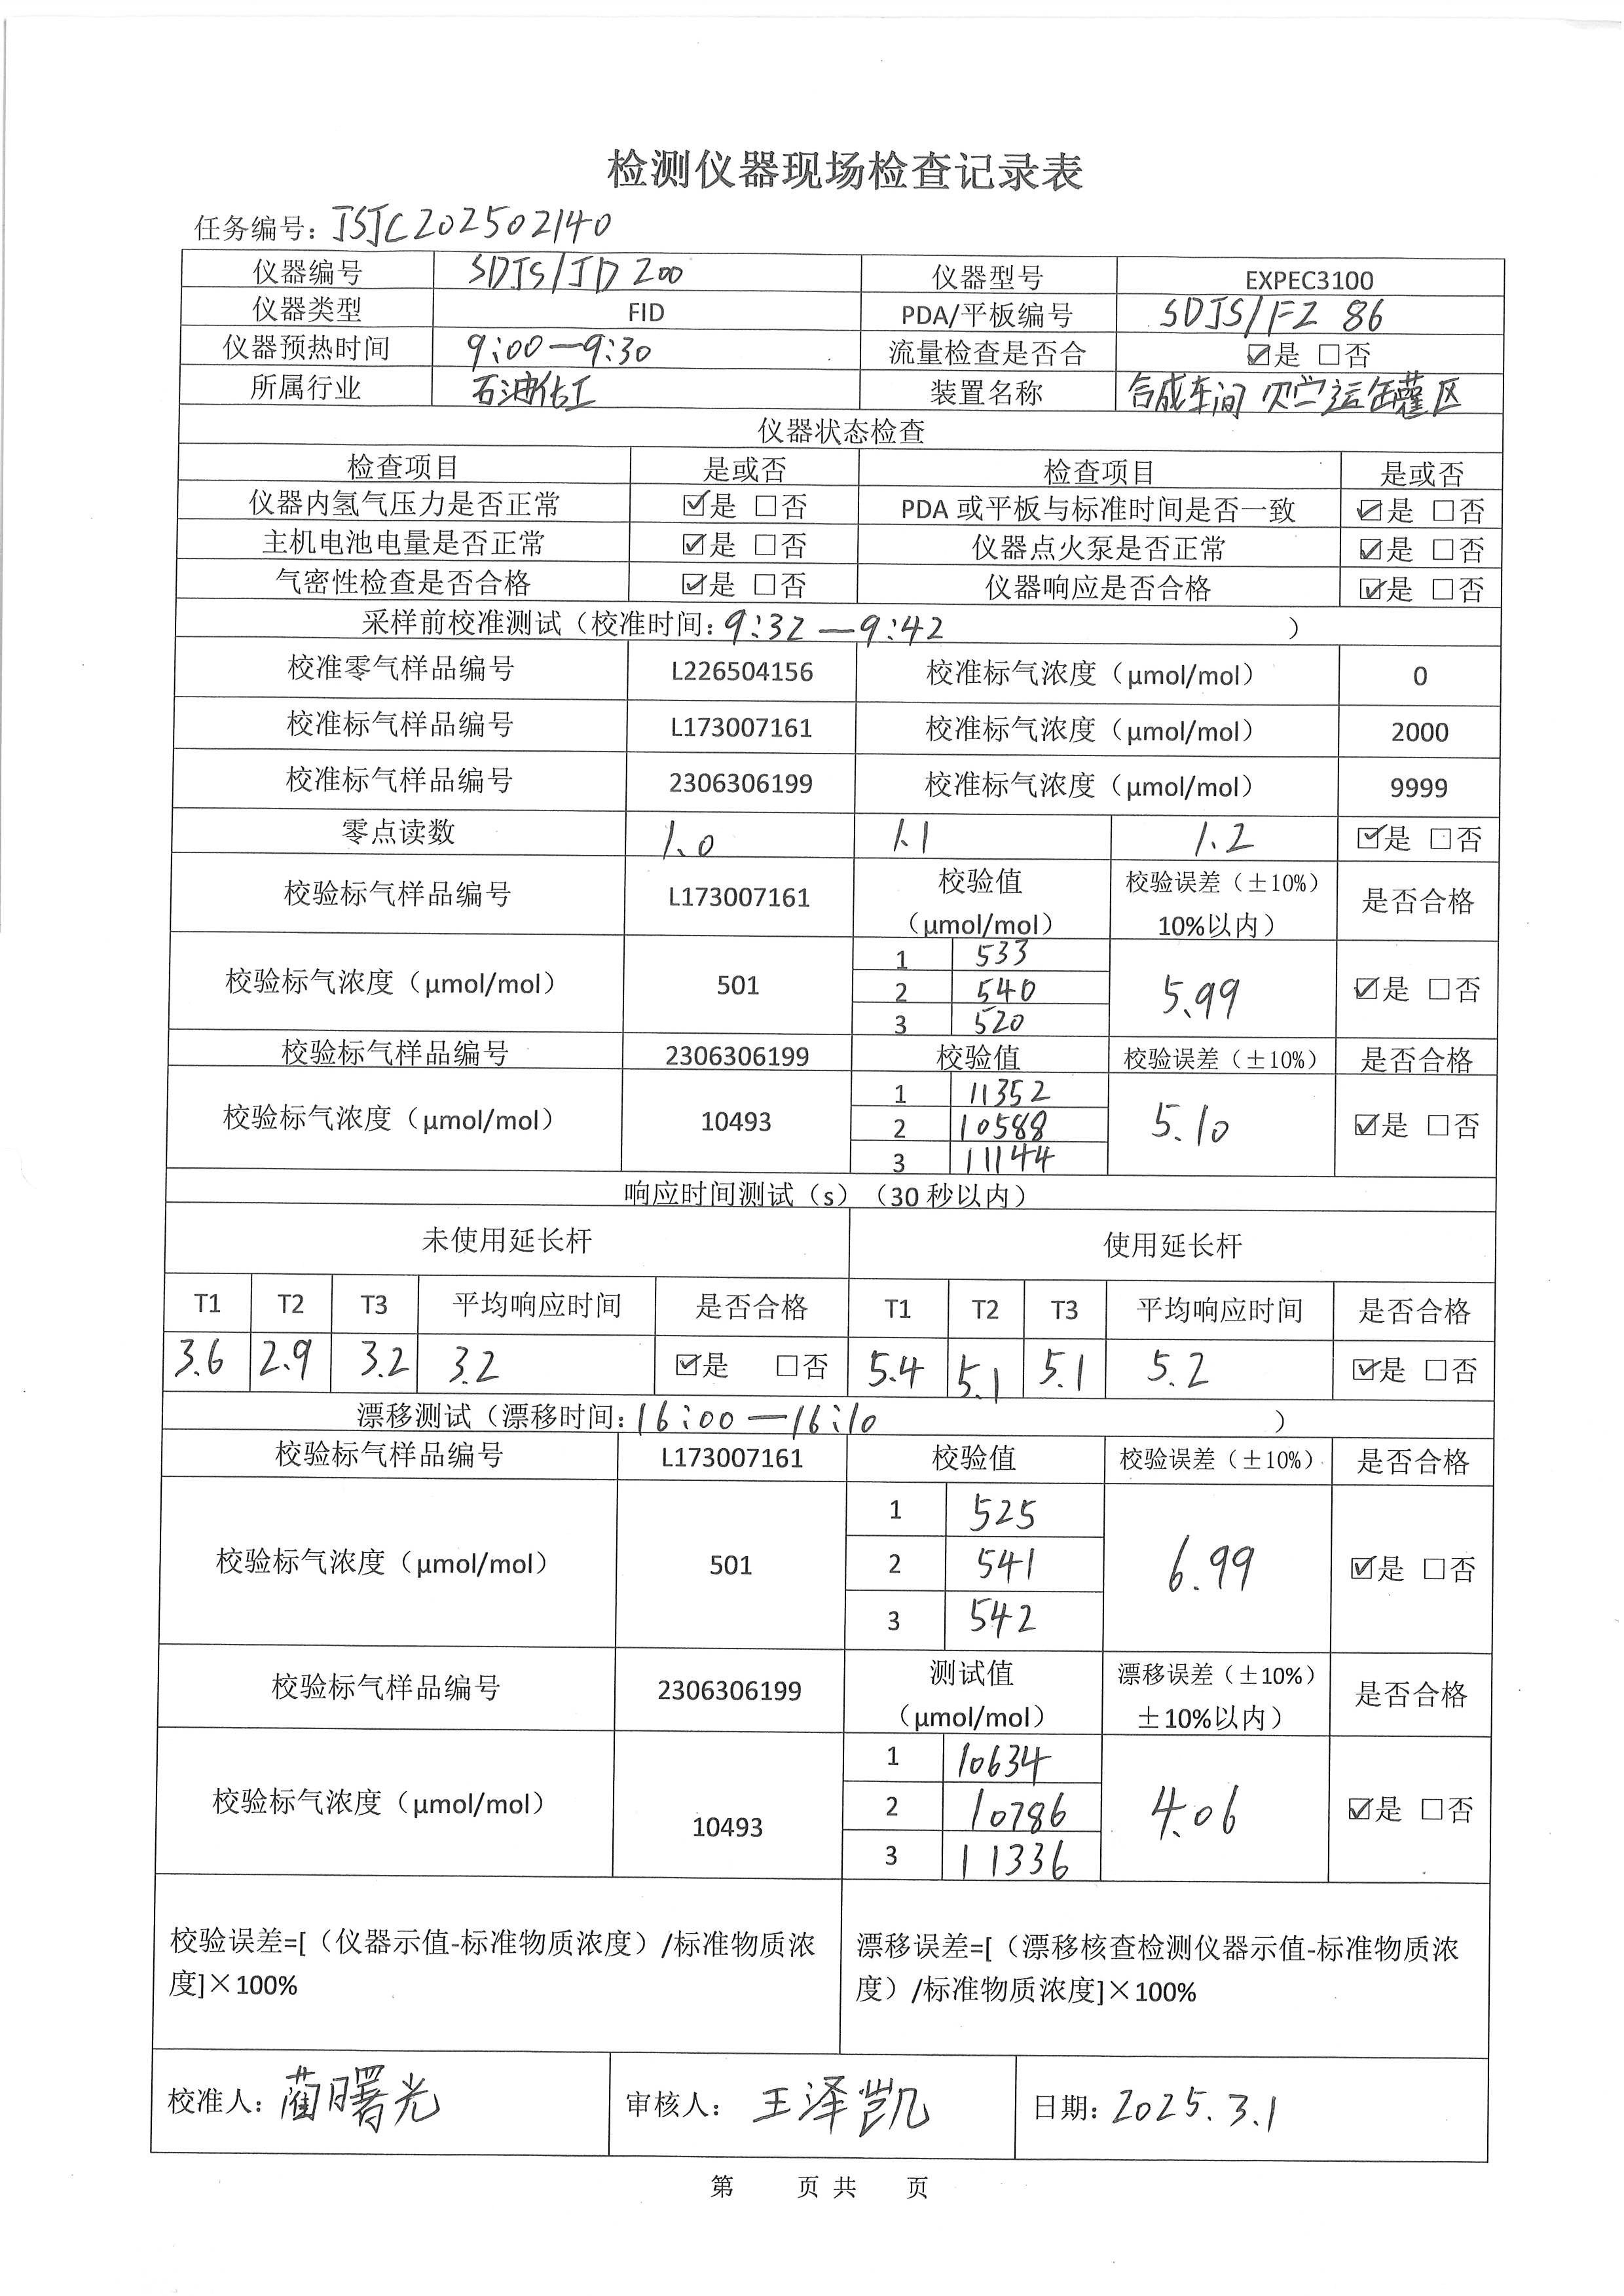 检测仪器现场检查记录表
任务编号：JSJC202502140
仪器编号 SDJS/JD 200 仪器型号 EXPEC3100
仪器类型 FID PDA/平板编号 SDJS/FZ 86
仪器预热时间 9:00—9:30 流量检查是否合 ☑是 □否
所属行业 石油化工 装置名称 合成车间 贮运罐区
仪器状态检查
检查项目 是或否 检查项目 是或否
仪器内氢气压力是否正常 ☑是 □否 PDA 或平板与标准时间是否一致 ☑是 □否
主机电池电量是否正常 ☑是 □否 仪器点火泵是否正常 ☑是 □否
气密性检查是否合格 ☑是 □否 仪器响应是否合格 ☑是 □否
采样前校准测试（校准时间：9:32—9:42 ）
校准零气样品编号 L226504156 校准标气浓度（μmol/mol） 0
校准标气样品编号 L173007161 校准标气浓度（μmol/mol） 2000
校准标气样品编号 2306306199 校准标气浓度（μmol/mol） 9999
零点读数 1.0 1.1 1.2 ☑是 □否
校验标气样品编号 L173007161 校验值（μmol/mol） 校验误差（±10%）10%以内） 是否合格
校验标气浓度（μmol/mol） 501 1 533 5.99 ☑是 □否
2 540
3 520
校验标气样品编号 2306306199 校验值 校验误差（±10%） 是否合格
校验标气浓度（μmol/mol） 10493 1 11352 5.10 ☑是 □否
2 10588
3 11144
响应时间测试（s）（30 秒以内）
未使用延长杆 使用延长杆
T1 T2 T3 平均响应时间 是否合格 T1 T2 T3 平均响应时间 是否合格
3.6 2.9 3.2 3.2 ☑是 □否 5.4 5.1 5.1 5.2 ☑是 □否
漂移测试（漂移时间：16:00—16:10 ）
校验标气样品编号 L173007161 校验值 校验误差（±10%） 是否合格
校验标气浓度（μmol/mol） 501 1 525 6.99 ☑是 □否
2 541
3 542
校验标气样品编号 2306306199 测试值（μmol/mol） 漂移误差（±10%）±10%以内） 是否合格
校验标气浓度（μmol/mol） 10493 1 10634 4.06 ☑是 □否
2 10786
3 11336
校验误差=[（仪器示值-标准物质浓度）/标准物质浓
度]×100%
漂移误差=[（漂移核查检测仪器示值-标准物质浓
度）/标准物质浓度]×100%
校准人：蔺曙光 审核人：王泽凯 日期：2025.3.1
第 页 共 页